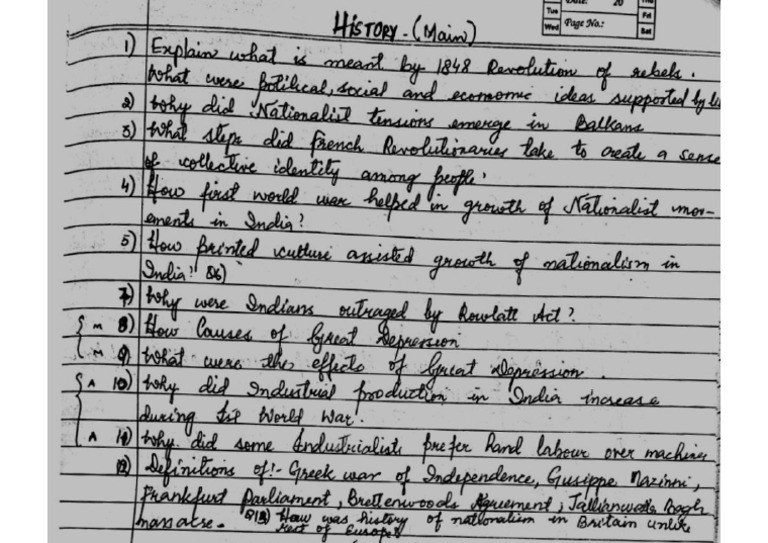 Date: 20
Tue
Wed
Page No.:
Thu
Fri
Sat
HISTORY - (Main)
1) Explain what is meant by 1848 Revolution of rebels.
What were Political, social and economic ideas supported by li
2) Why did Nationalist tensions emerge in Balkans
3) What steps did French Revolutionaries take to create a sense
of collective identity among people.
4) How first world war helped in growth of Nationalist mov-
ements in India?
5) How printed culture assisted growth of nationalism in
India? Q6)
7) Why were Indians outraged by Rowlatt Act?
M 8) How Causes of Great Depression
M 9) What were the effects of Great Depression.
A 10) Why did Industrial production in India increase
during Ist World War.
A 11) Why did some Industrialists prefer hand labour over machines
12) Definitions of:- Greek war of Independence, Gusippe Mazinni,
Frankfurt Parliament, Brettenwoods Agreement, Jallianwala Bagh
massacre. Q13) How was history of nationalism in Britain unlike
rest of Europe?